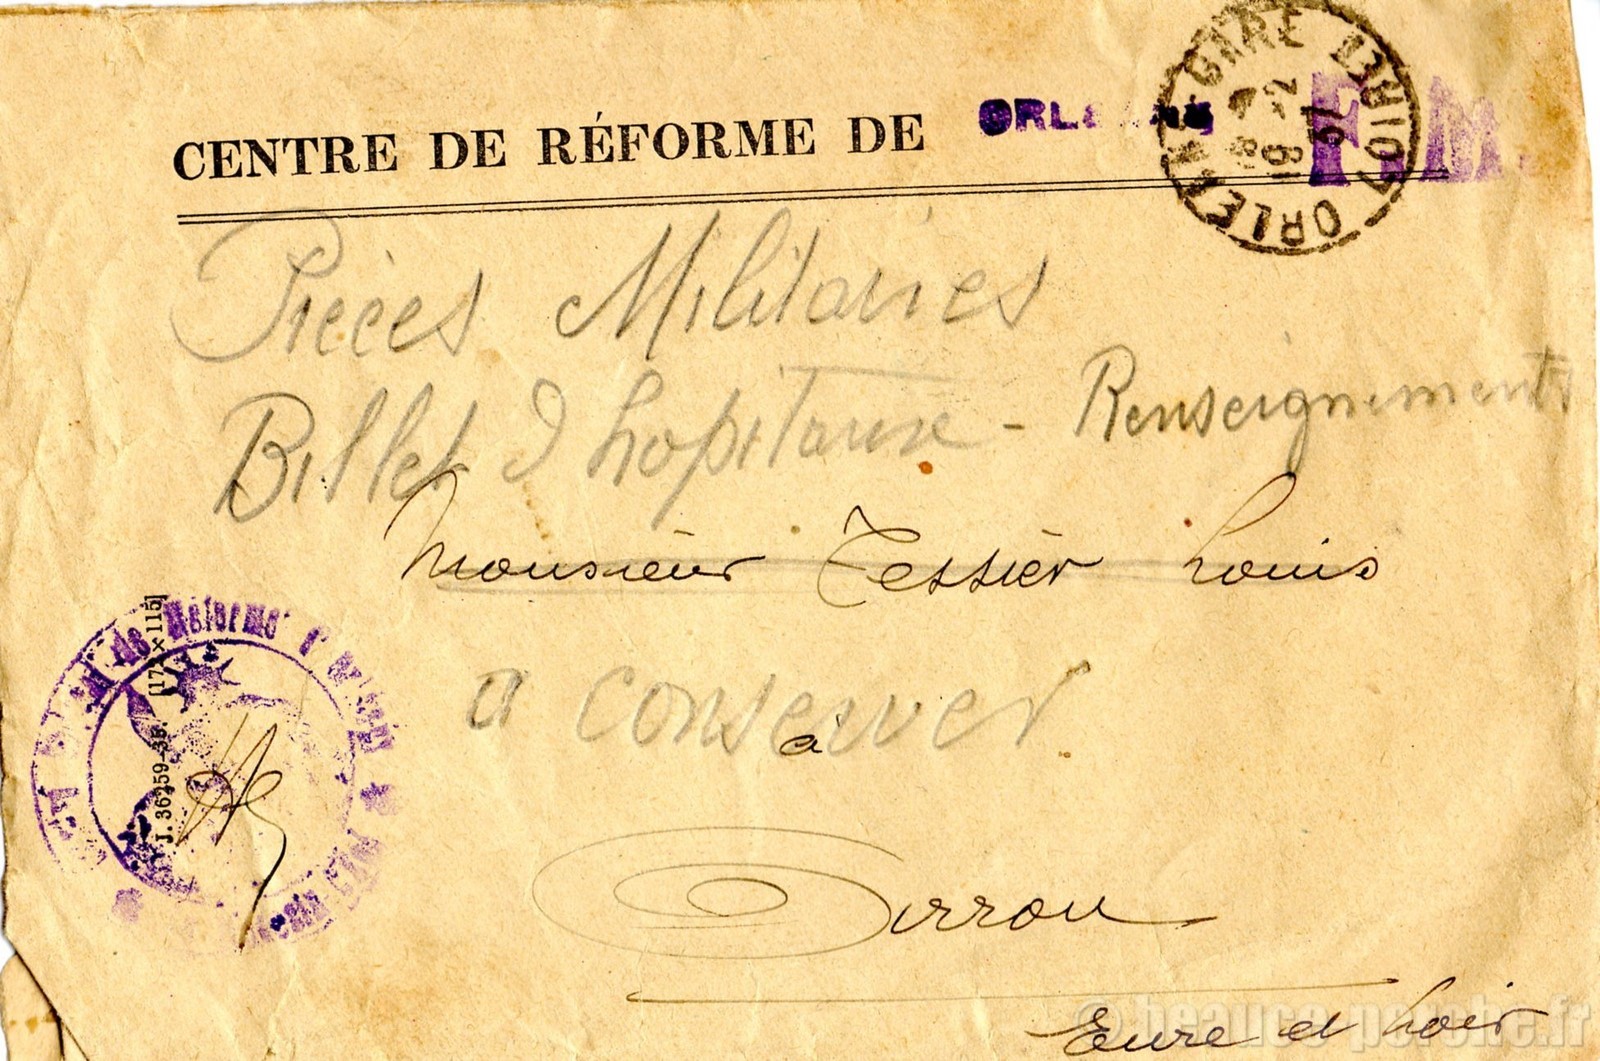 CENTRE DE RÉFORME DE ORLEANS
F.M.
ORLEANS-GARE LOIRET
Pièces Militaires
Billet d'hopitaux - Renseignements
Monsieur Tessier Louis
a conserver
à
Pirrou
Eure et Loir
de Réforme
J. 36259-38
© beauce-perche.fr